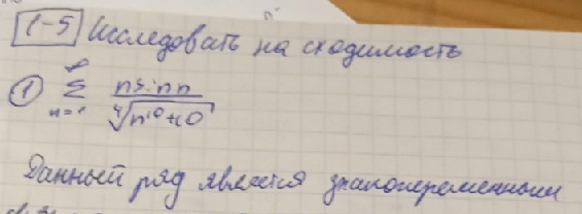 1-5 Исследовать на сходимость
① ∞ ∑ n=1 n sin n / ∜(n¹⁰+10)
Данный ряд является знакопеременным